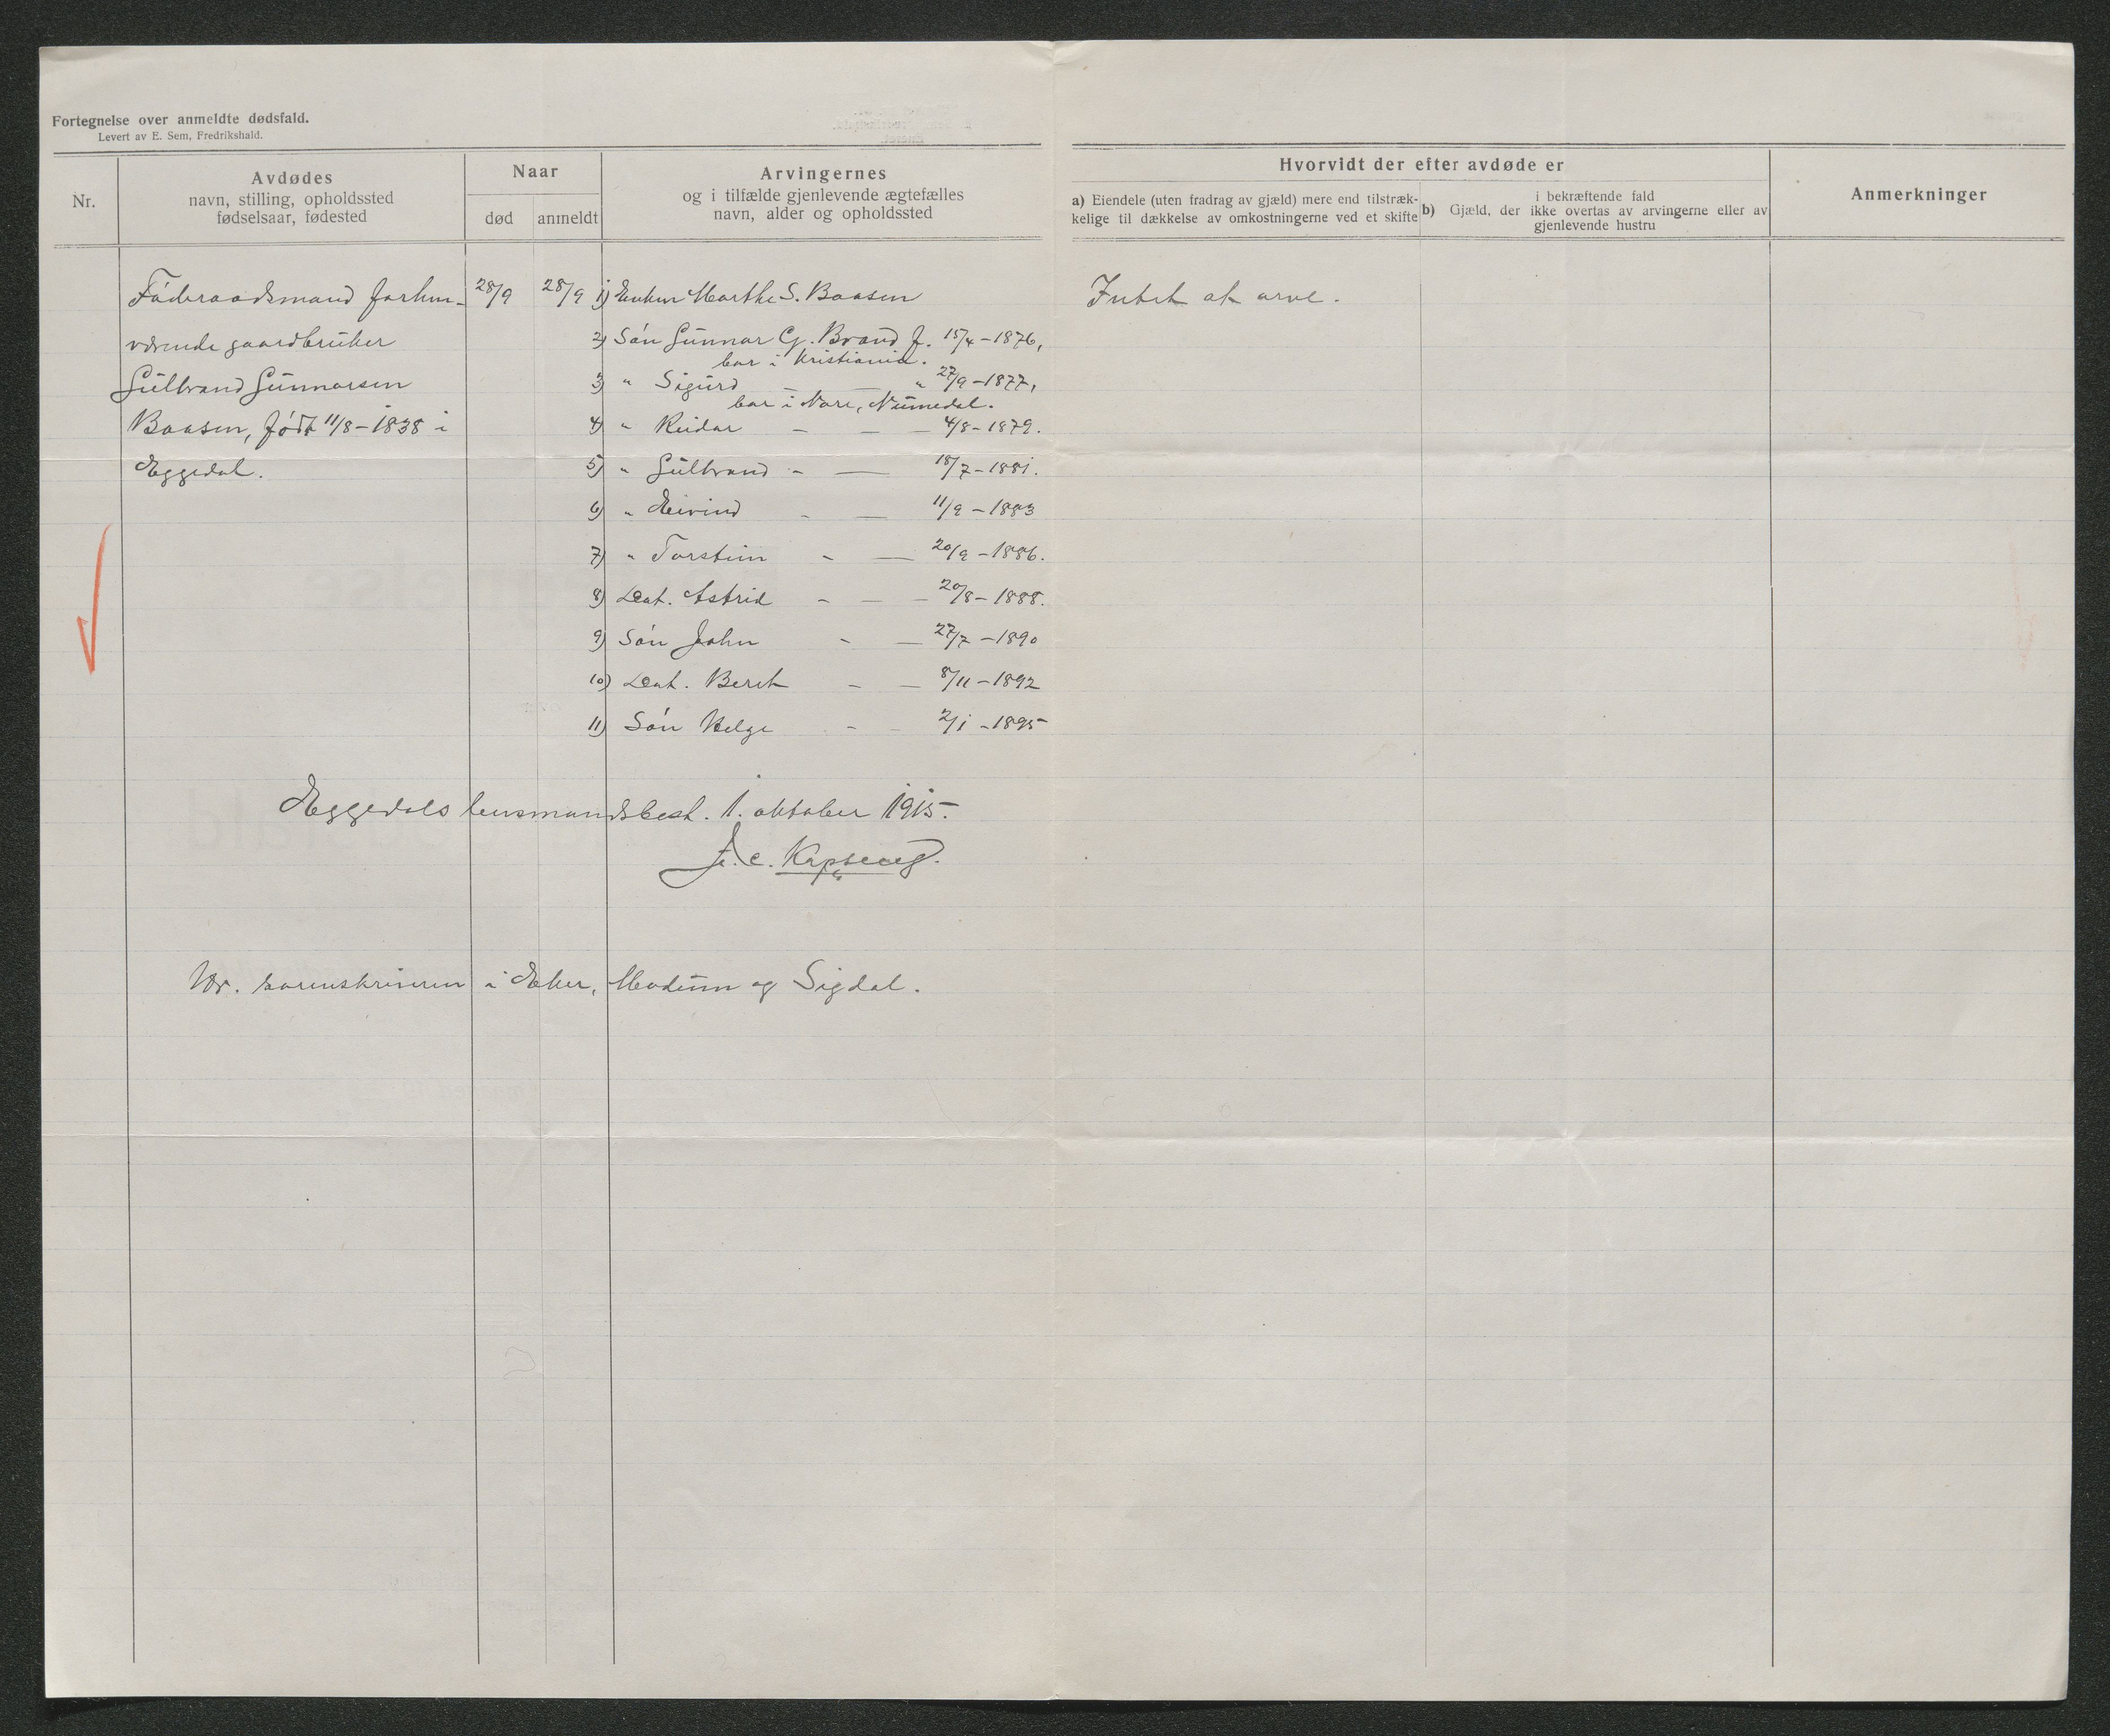 Fortegnelse over anmeldte dødsfald.
Levert av E. Sem, Fredrikshald.
Nr.
Avdødes
navn, stilling, opholdssted
fødselsaar, fødested
Naar
død
anmeldt
Arvingernes
og i tilfælde gjenlevende ægtefælles
navn, alder og opholdssted
Hvorvidt der efter avdøde er
a) Eiendele (uten fradrag av gjæld) mere end tilstræk-
kelige til dækkelse av omkostningerne ved et skifte
i bekræftende fald
b) Gjæld, der ikke overtas av arvingerne eller av
gjenlevende hustru
Anmerkninger
Föderaadsmand forhen-
værende gaardbruker
Gulbrand Gunnarsen
Baasen, født 11/8-1838 i
Eggedal.
28/9
28/9
1) Enken Marthe S. Baasen
2) Sön Gunnar G. Brand f. 15/4-1876,
bor i Kristiania.
3) " Sigurd — " 27/9-1877,
bor i Nore, Numedal.
4) " Reidar - — — 4/8-1879.
5) " Gulbrand - — 18/7-1881.
6) " Eivind - — 11/9-1883
7) " Torstein - — 20/9-1886.
8) Dat. Astrid - — — 20/8-1888.
9) Sön John - — 27/7-1890
10) Dat. Berit - — 8/11-1892
11) Sön Helge - - 2/1-1895
Intet at arve.
Eggedals lensmandsbest. 1. oktober 1915.
A. C. Kopseng.
Hr. sorenskriveren i Eker, Modum og Sigdal.